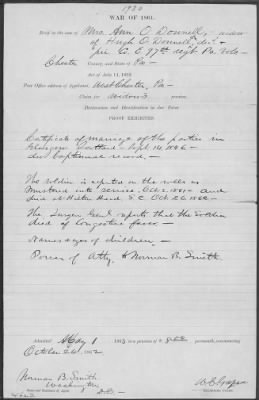 1920
WAR OF 1861.
Brief in the case of Mrs. Ann O. Donnell, widow
of Hugh O. Donnell, dec'd
pri Co. C. 97th Regt Pa Vols
Chester County, and State of Pa
Act of July 14, 1862.
Post Office address of Applicant, West Chester, Pa
Claim for widow's pension.
Declaration and Identification in due Form
PROOF EXHIBITED.
Certificate of marriage of the parties in
Glasgow Scotland Sept 14, 1846
due baptismal record,
The Soldier is reported on the rolls as
Mustered into service Oct 2 1861 and
died at Hilton Head S C Oct 26 1862
The Surgeon Genl reports that the soldier
died of Congestive fever
Names & ages of children
Power of Atty to Norman B. Smith
Admitted May 1 1863
October 26 1862
Norman B. Smith
Washington
D.C.